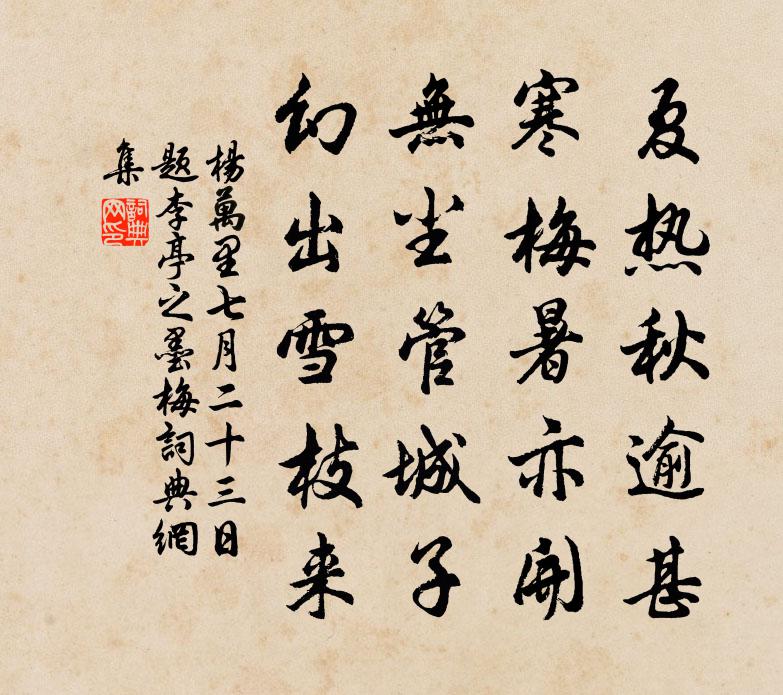 夏热秋逾甚
寒梅暑亦開
無尘管城子
幻出雪枝来
楊萬里七月二十三日
题李亭之墨梅詞典網
集
詞典网印